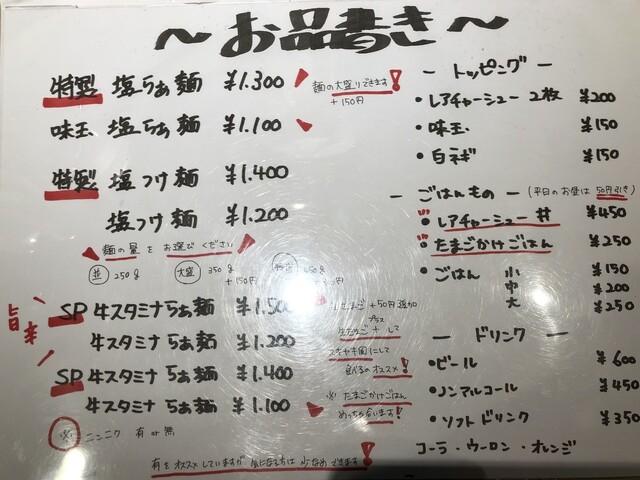 ～お品書き～
特製 塩らぁ麺 ¥1.300
味玉 塩らぁ麺 ¥1.100
麺の大盛りできます!
+150円
特製 塩つけ麺 ¥1.400
塩つけ麺 ¥1.200
麺の量をお選びください
並 250g 大盛 350g
+150円
旨辛
SP 牛スタミナらぁ麺 ¥1.500
牛スタミナらぁ麺 ¥1.200
SP 牛スタミナらぁ麺 ¥1.400
牛スタミナらぁ麺 ¥1.100
+50円追加
プラス
生たまご + して
スキヤキ風にして
食べるのオススメ!
※ たまごかけごはん
めっちゃ合います!
※ ニンニク 有 or 無
有をオススメしていますが 気になる方は 少なめできます!
ー トッピング ー
・レアチャーシュー 2枚 ¥200
・味玉 ¥150
・白ネギ ¥150
ー ごはんもの ー (平日のお昼は50円引き)
・レアチャーシュー丼 ¥450
・たまごかけごはん ¥250
・ごはん 小 ¥150
中 ¥200
大 ¥250
ー ドリンク ー
・ビール ¥600
・ノンアルコール ¥450
・ソフトドリンク ¥350
コーラ・ウーロン・オレンジ